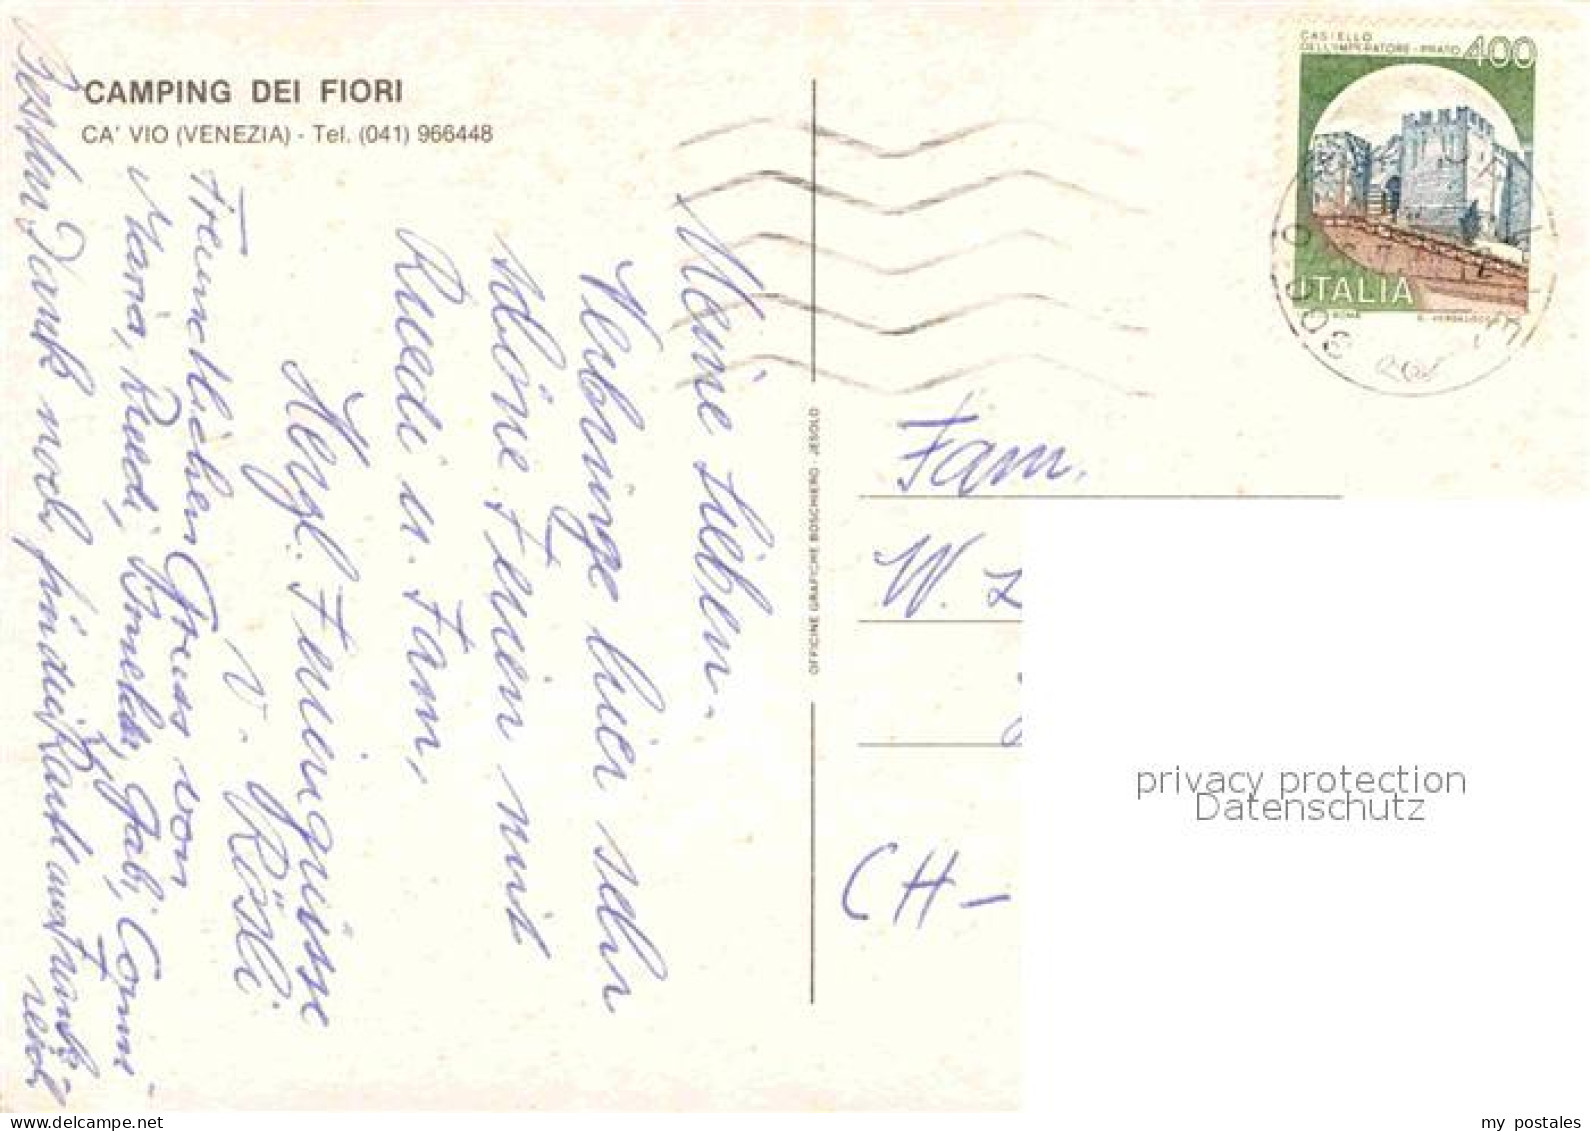 CAMPING DEI FIORI
CA' VIO (VENEZIA) - Tel. (041) 966448
Meine Lieben.
Verbringe hier sehr
schöne Ferien mit
Ruedi u. Fam.
Herzl. Feriengrüsse
v. Rösli
Freundlichen Gruss von
Maria, Ruedi, Gabi, Conni
Besten Dank noch für
OFFICINE GRAFICHE BOSCHIERO - JESOLO
CASTELLO
DELL'IMPERATORE - PRATO 400
ITALIA
ROMA
Fam.
W. Z
CH-
privacy protection
Datenschutz
my postales